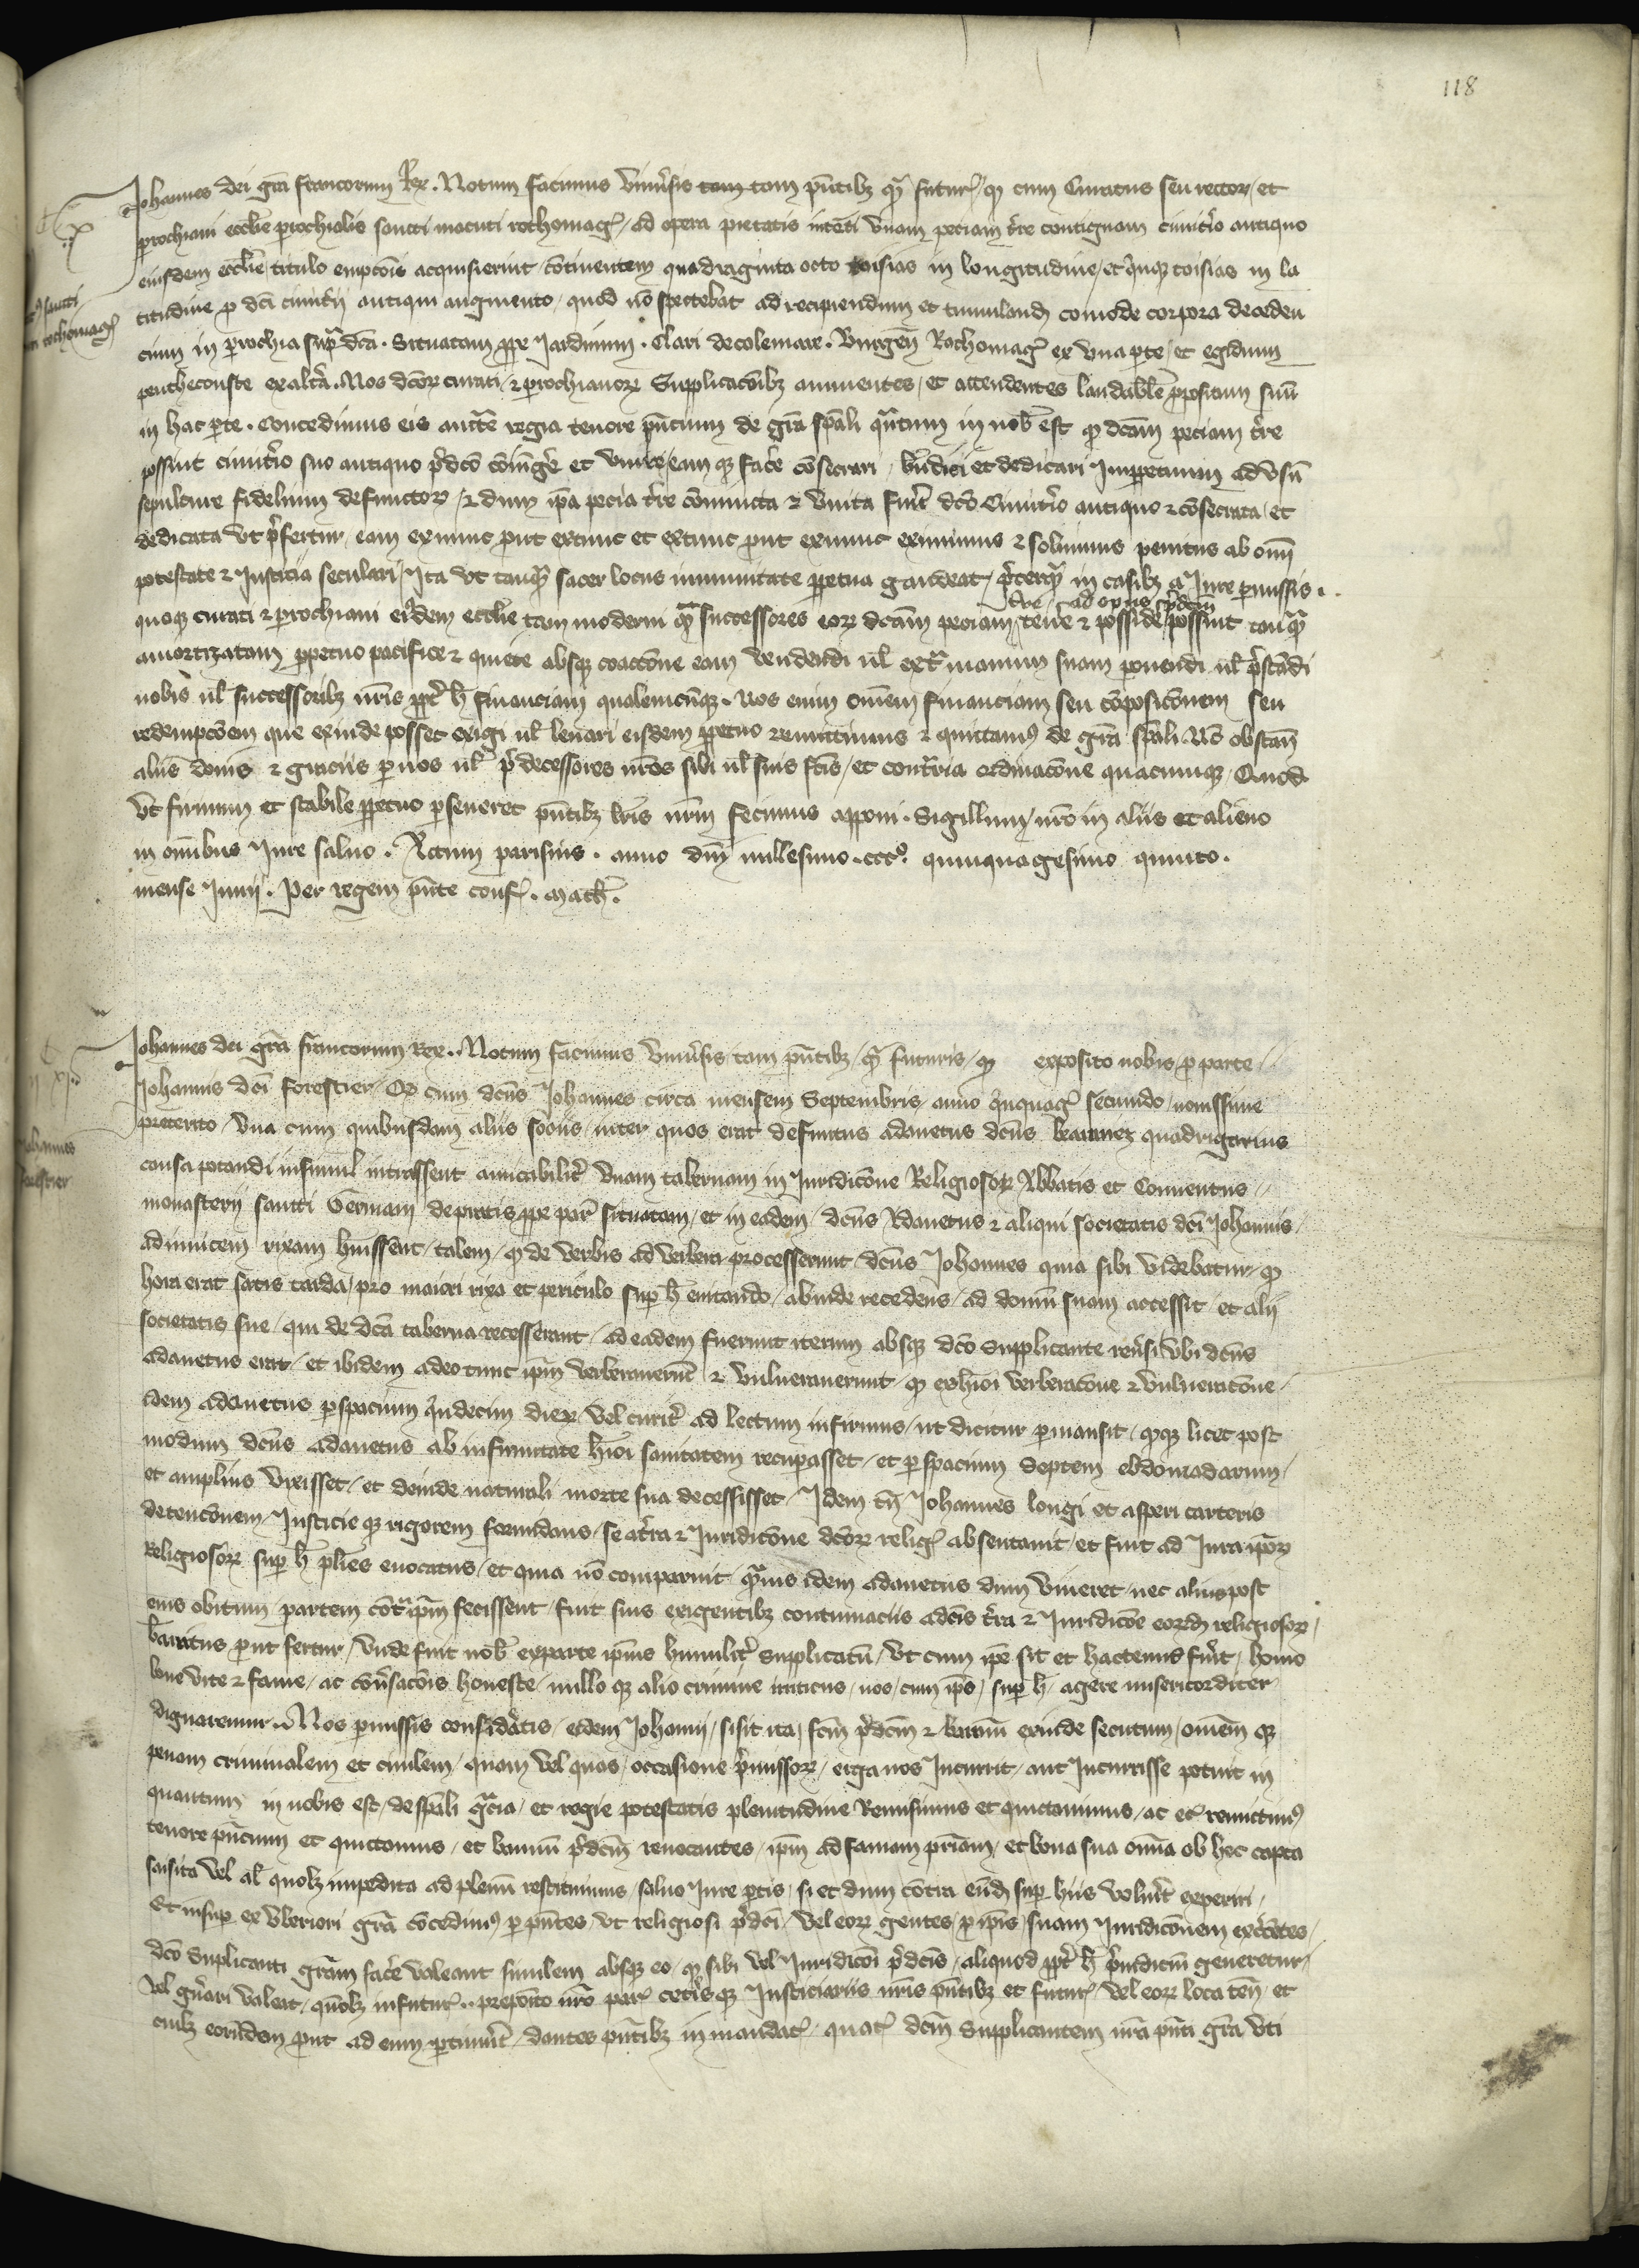 118
Johannes dei gra francorum Rex. Notum facimus Universis tam tam pntibz qm futur / qd cum Curatus seu rector / et
prochiani ecclie prochialis sancti macuti rothomag / ad opera pietatis intenti unam peciam tre contiguam cimitio antiquo
eiusdem ecclie / titulo empcois acquisierint / continentem quadraginta octo toisias in longitudine / et quinqz toisias in la
titudine p dci cimiterii antiqui augmento / quod no ad recipiendum et tumuland comode corpora deceden
cium in prochia supradca. Situatam ppe Jardinum. Clari de colemare. Burgen Rothomag ex una pte / et egidium
penthecouste ex altera. Nos dcorz curati / et prochianorz Supplicacoibz annuentes / et attendentes laudabile propositum suu
in hac pte. Concedimus eis aucte regia tenore pncium de gra spali qntum in nob est qd dcam peciam tre
possint cimitio suo antiquo pdco coniuge et unire eam qz face consecrari / bndici et dedicari Imppetuum ad usu
sepulture fidelium defunctorz / et dum ipa pecia tre coniuncta et unita fuit dco Cimitio antiquo et consecrata / et
dedicata ut pfertur / eam exnunc put extunc et extunc put exnunc eximimus et soluimus penitus ab omi
potestate et Justicia seculari / Ita ut tanqm sacer locus immunitate ppetua gaudeat / pterqm in casibz a Jure pmissis.
tre ad opus pdcm
quoqz curati et prochiani eisdem ecclie tam moderni qm successores eorz dcam peciam tene et posside possint tanqm
amortizatam ppetuo pacifice et quiete absqz coaccone eam vendendi ul extra manum suam ponendi ul pstadi
nobis ul successoribz nris ppt h financiam qualemcuqz. Nos enim omem financiam seu composiconem seu
redempcoem que exinde posset exigi ul levari eisdem ppetuo remittimus et quittamus de gra spali. No obstan
aliis donis et graciis p nos ul predecessores nros sibi ul suis fcis / et contraria ordinacone quacumqz / Quod
ut firmum et stabile ppetuo perseveret pntibz lris nrm fecimus apponi. Sigillum / nro in aliis et alieno
in omibus Jure salvo. Actum parisius. anno dni millesimo. ccc. quinquagesimo quinto.
mense Junii. Per regem pnte conf. Math.
Johannes dei gra francorum Rex. Notum facimus Universis tam pntibz / qm futuris / qd exposito nobis p parte
Johannis dci forestier / Qd cum dcus Johannes circa mensem Septembris anno qnquag secundo / novissime
preterito / una cum quibusdam aliis sociis / inter quos erat defunctus adanetus dcus quadrigarius
causa potandi insimul intrassent amicabilit unam tabernam in Juridicone Religiosorz Abbatis et Conventus
monasterii sancti Germani de pratis ppe par situatam / et in eadem / dcus Adanetus et aliqui societatis dci Johannis /
adinvicem rixam huissent / talem / qd de verbis ad verbera processerunt / dcus Johannes quia sibi videbatur qd
hora erat satis tarda / pro maiori rixa et periculo sup h evitando / abinde recedens / ad domu suam accessit / et alii
societatis sue / qui de dca taberna recesserant / ad eadem fuerunt iterum absqz dco Supplicante reversi ubi dcus
adanetus erat / et ibidem adeo tunc ipm verberaverut et vulneraverunt / qd ex hmoi verberacone et vulneracone /
idem adanetus p spacium qndecim dierz / vel circit ad lectum infirmus / ut dicitur permansit / qdqz licet post
modum dcus adanetus ab infirmitate hmoi sanitatem recupasset / et p spacium Septem ebdomadarum /
et amplius vixisset / et deinde naturali morte sua decessisset / Idem tn Johannes longi et asperi carceris
detenconem / Justicie qz rigorem formidans / se a tra et Juridicone dcorz relig absentavit / et fuit ad Jura ipsorz
Religiosorz sup h plies evocatus / et quia no comparuit / qmvis idem adanetus dum viveret / nec alius post
eius obitum / partem cotra ipm fecissent / fuit suis exigentibz contumaciis a dcis tra et Juridicoe eorumd religiosorz /
bannitus put fertur / Unde fuit nob ex parte ipius humilit Supplicatu / ut cum ipe sit et hactenus fuit / homo
bone vite et fame / ac coversacois honeste / nullo qz alio crimine / nos / cum ipo / sup h / agere misericorditer
dignaremur. Nos pmissis consideratis / eidem Johanni / si sit ita / fcm pdcm et bannu exinde secutum / omem qz
penam criminalem et civilem / quam vel quas / occasione pmissorz / erga nos Incurrit / aut Incurrisse potuit in
quantum in nobis est / de spali gracia / et regie potestatis plenitudine Remisimus et quictavimus / ac et remittimus
tenore pncium et quictamus / et bannu pdcm revocantes / ipm ad famam priam / et bona sua omia ob hec capta
saisita vel al quolz impedita ad plenu restituimus / salvo Jure ptis / si et dum contra eud sup hiis voluit experiri /
Et insup ex Uberiori gra concedimus p pntes / ut religiosi pdci / vel eorz gentes / p ipis / suam Juridiconem excentes /
dco Supplicanti gram face valeant similem absqz eo / qd sibi vel Juridiconi pdcis / aliquod ppt h preiudiciu generetur /
vel gnari valeat / quolz infutur.. preposito nro par ceteris qz Justiciariis nris pntibz et futur / vel eorz loca ten / et
cuilz eorumdem put ad eum ptinuit / dantes pntibz in mandat / quat dcm Supplicantem nra pnti gra uti